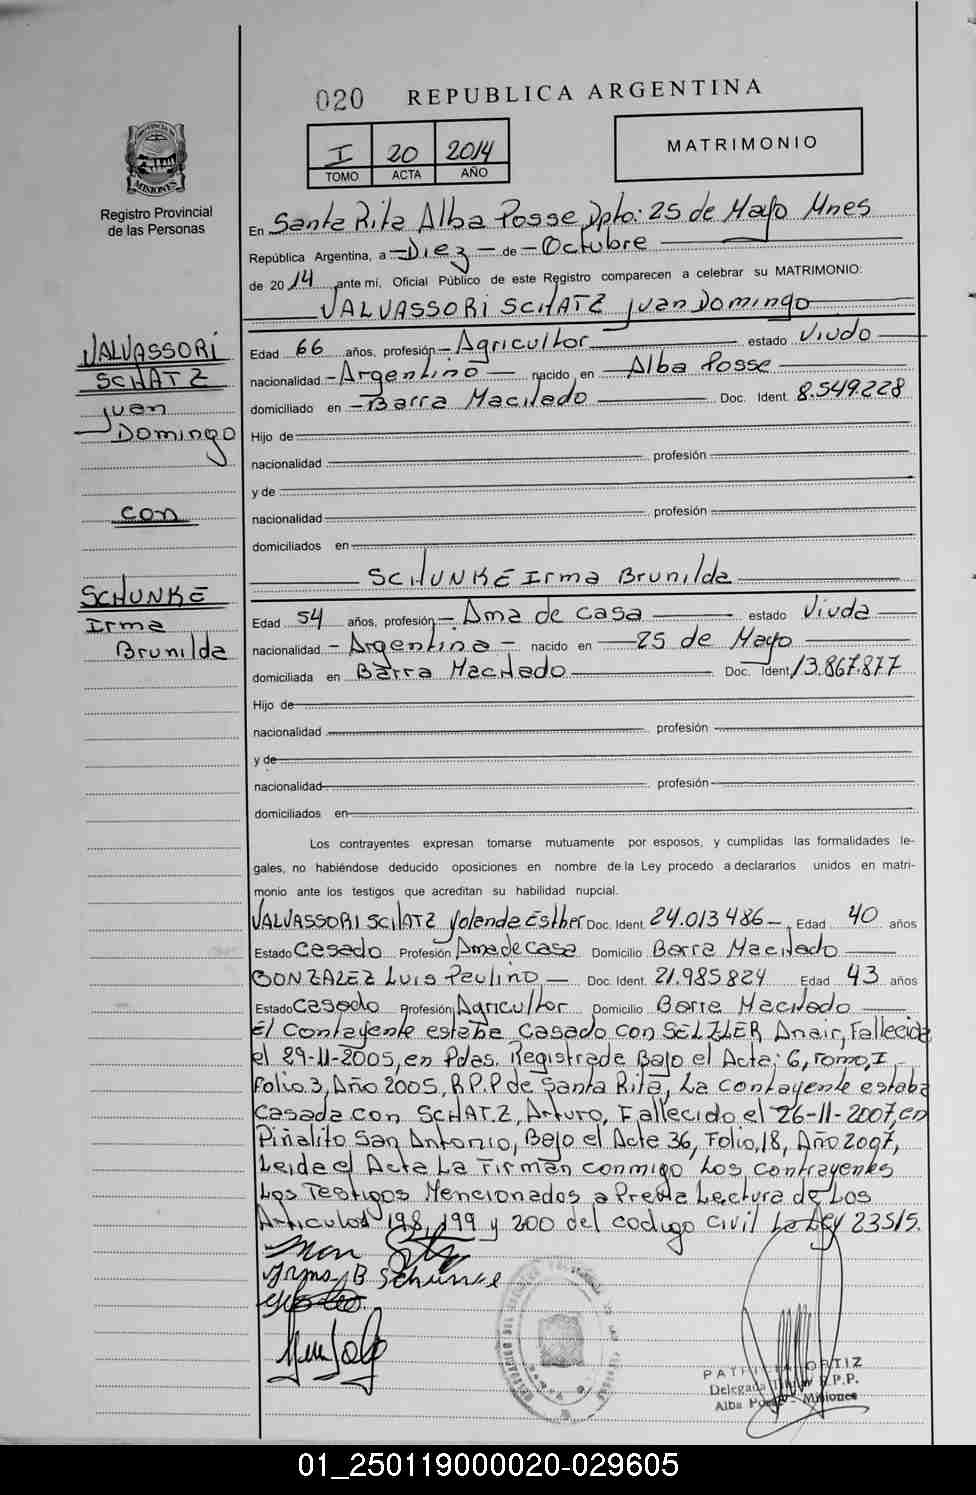 020 REPUBLICA ARGENTINA
I 20 2014
TOMO ACTA AÑO
MATRIMONIO
PROVINCIA DE MISIONES
Registro Provincial
de las Personas
En Santa Rita Alba Posse Dpto: 25 de Mayo Mnes
República Argentina, a -Diez- de -Octubre
de 2014 ante mi, Oficial Público de este Registro comparecen a celebrar su MATRIMONIO:
VALVASSORI SCHATZ Juan Domingo
Edad 66 años, profesión - Agricultor estado Viudo
nacionalidad - Argentino - nacido en - Alba Posse
domiciliado en - Barra Machado Doc. Ident. 8.549.228
Hijo de
nacionalidad profesión
y de
nacionalidad profesión
domiciliados en
SCHUNKE Irma Brunilda
Edad 54 años, profesión - Ama de casa estado Viuda
nacionalidad - Argentina - nacido en - 25 de Mayo
domiciliada en Barra Machado Doc. Ident. 13.867.877
Hijo de
nacionalidad profesión
y de
nacionalidad profesión
domiciliados en
VALVASSORI
SCHATZ
Juan
Domingo
con
SCHUNKE
Irma
Brunilda
Los contrayentes expresan tomarse mutuamente por esposos, y cumplidas las formalidades le-
gales, no habiéndose deducido oposiciones en nombre de la Ley procedo a declararlos unidos en matri-
monio ante los testigos que acreditan su habilidad nupcial.
VALVASSORI SCHATZ Yolanda Esther Doc. Ident. 24.013486 - Edad 40 años
Estado Casado Profesión Ama de casa Domicilio Barra Machado
GONZALEZ Luis Paulino - Doc. Ident. 21.985824 Edad 43 años
Estado Casado Profesión Agricultor Domicilio Barra Machado
El Contayente estaba Casado con SELZLER Anair, Fallecida
el 29-11-2005, en Pdas. Registrada Bajo el Acta; 6, Tomo, I
Folio. 3, Año 2005, R.P.P de Santa Rita, La Contayente estaba
Casada con SCHATZ, Arturo, Fallecido el 26-11-2007, en
Piñalito San Antonio, Bajo el Acta 36, Folio, 18, Año 2007,
Leida el Acta La Firman conmigo Los Contrayentes
Los Testigos Mencionados a Previa Lectura de Los
Articulos 198, 199 y 200 del codigo civil La Ley 23515.
Irma B Schunke
PATRICIA ORTIZ
Delegada Titular R.P.P.
Alba Posse - Misiones
01_250119000020-029605